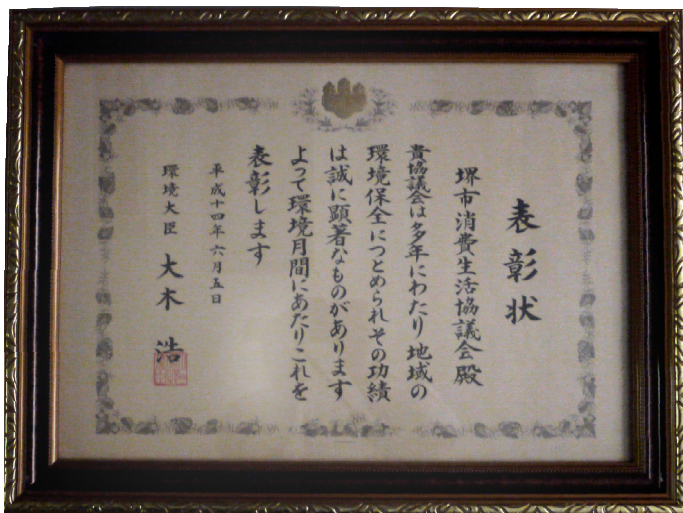 表彰状
堺市消費生活協議会殿
貴協議会は多年にわたり地域の
環境保全につとめられその功績
は誠に顕著なものがあります
よって環境月間にあたりこれを
表彰します
平成十四年六月五日
環境大臣 大木 浩